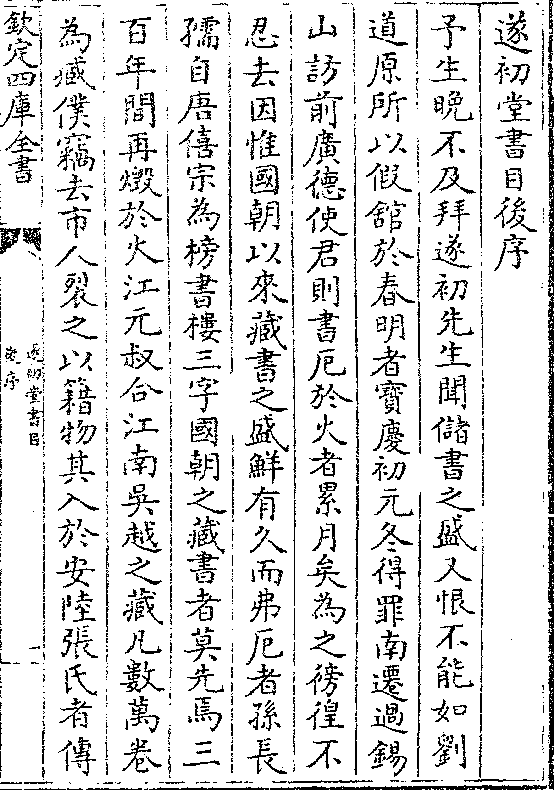 遂初堂書目後序
予生晚不及拜遂初先生聞儲書之盛又恨不能如劉
道原所以假舘於春明者寶慶初元冬得罪南遷過錫
山訪前廣德使君則書厄於火者累月矣為之徬徨不
忍去因惟國朝以來藏書之盛鮮有久而弗厄者孫長
孺自唐僖宗為榜書樓三字國朝之藏書者莫先焉三
百年間再燬於火江元叔合江南吳越之藏凡數萬卷
為臧僕竊去市人裂之以籍物其入於安陸張氏者傳
欽定四庫全書
遂初堂書目
後序